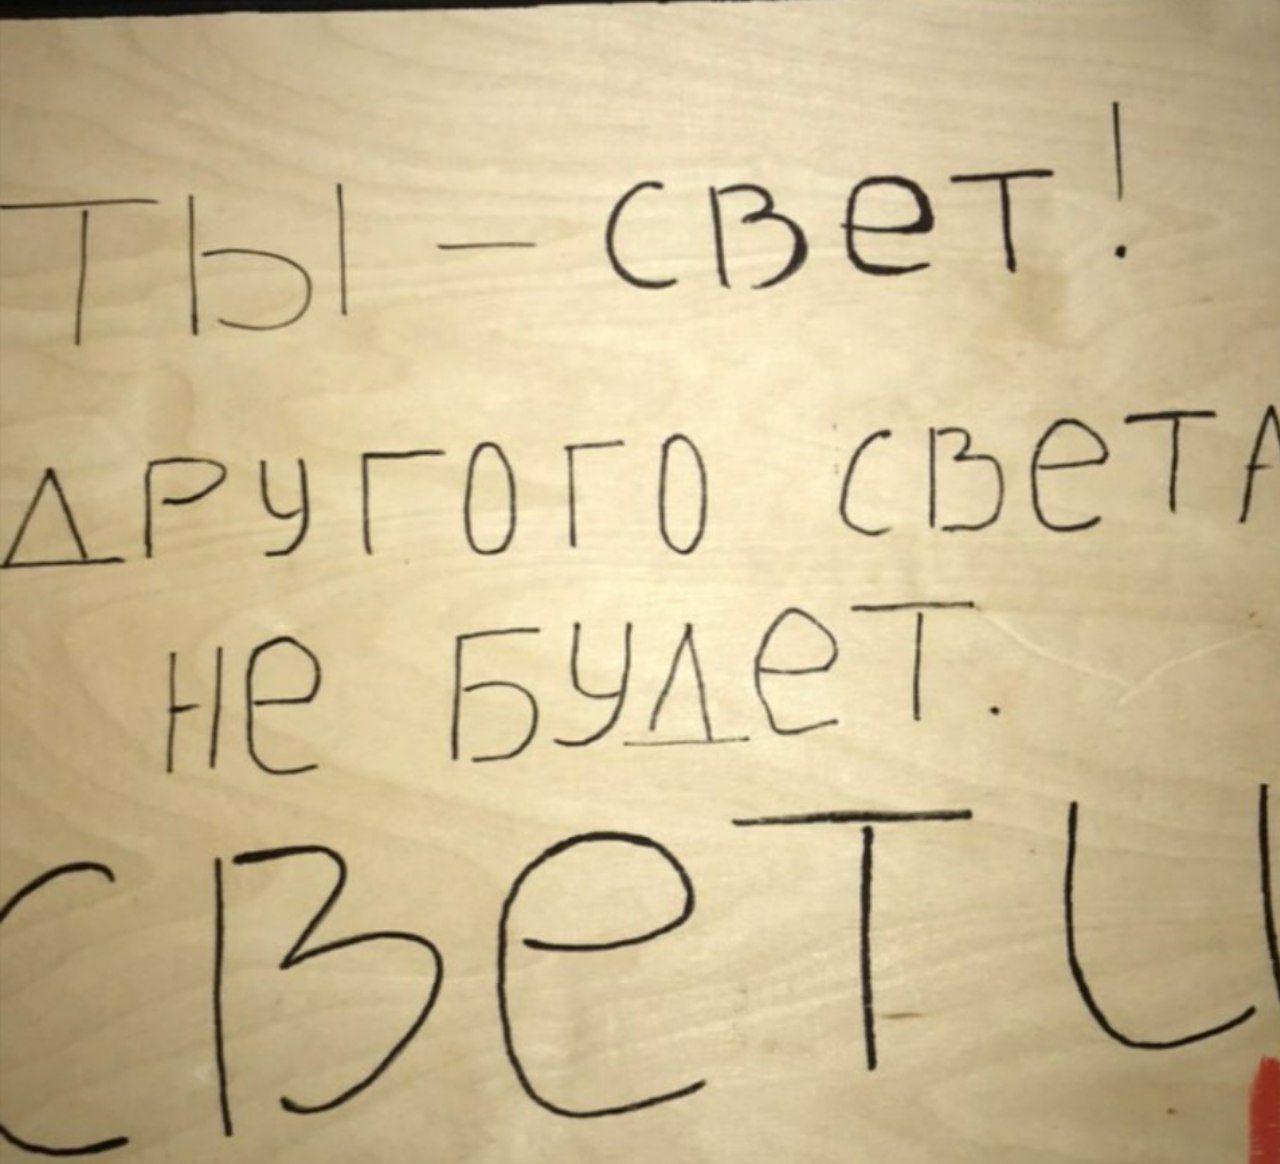 ТЫ — СВЕТ!
ДРУГОГО СВЕТА
НЕ БУДЕТ.
СВЕТИ